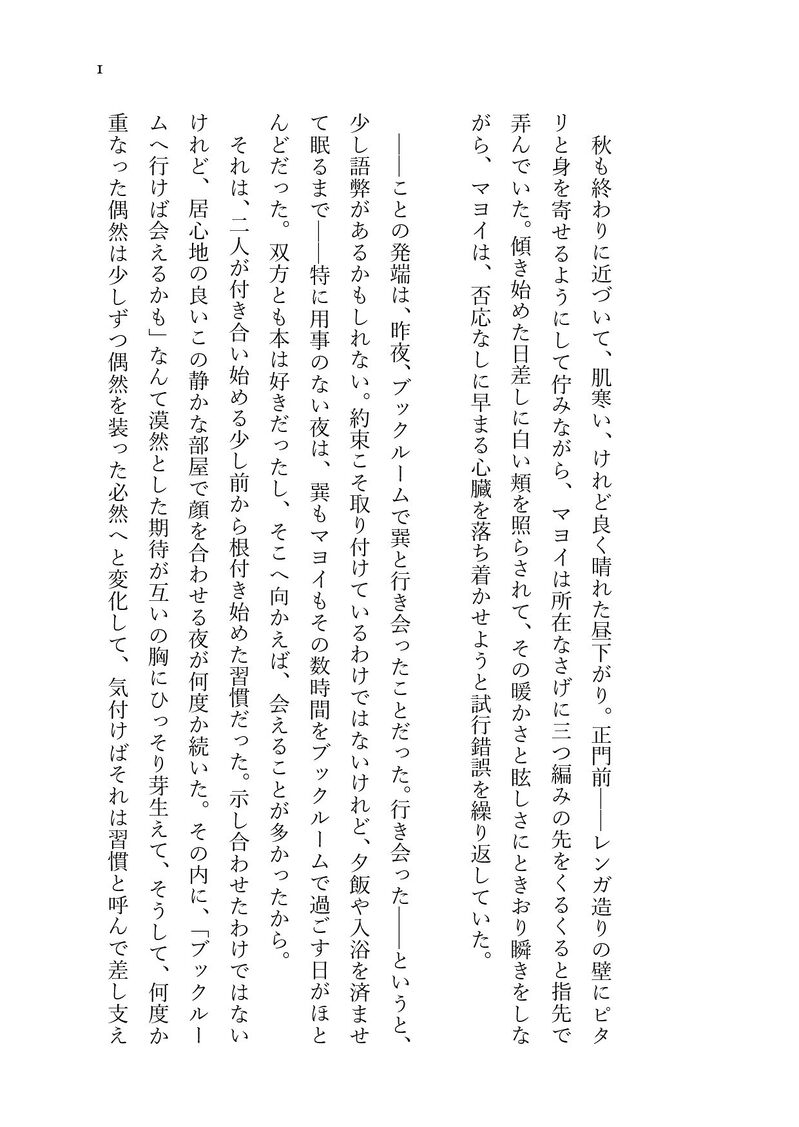 1
秋も終わりに近づいて、肌寒い、けれど良く晴れた昼下がり。正門前――レンガ造りの壁にピタ
リと身を寄せるようにして佇みながら、マヨイは所在なさげに三つ編みの先をくるくると指先で
弄んでいた。傾き始めた日差しに白い頬を照らされて、その暖かさと眩しさにときおり瞬きをしな
がら、マヨイは、否応なしに早まる心臓を落ち着かせようと試行錯誤を繰り返していた。
――ことの発端は、昨夜、ブックルームで巽と行き会ったことだった。行き会った――というと、
少し語弊があるかもしれない。約束こそ取り付けているわけではないけれど、夕飯や入浴を済ませ
て眠るまで――特に用事のない夜は、巽もマヨイもその数時間をブックルームで過ごす日がほと
んどだった。双方とも本は好きだったし、そこへ向かえば、会えることが多かったから。
それは、二人が付き合い始める少し前から根付き始めた習慣だった。示し合わせたわけではない
けれど、居心地の良いこの静かな部屋で顔を合わせる夜が何度か続いた。その内に、「ブックルー
ムへ行けば会えるかも」なんて漠然とした期待が互いの胸にひっそり芽生えて、そうして、何度か
重なった偶然は少しずつ偶然を装った必然へと変化して、気付けばそれは習慣と呼んで差し支え